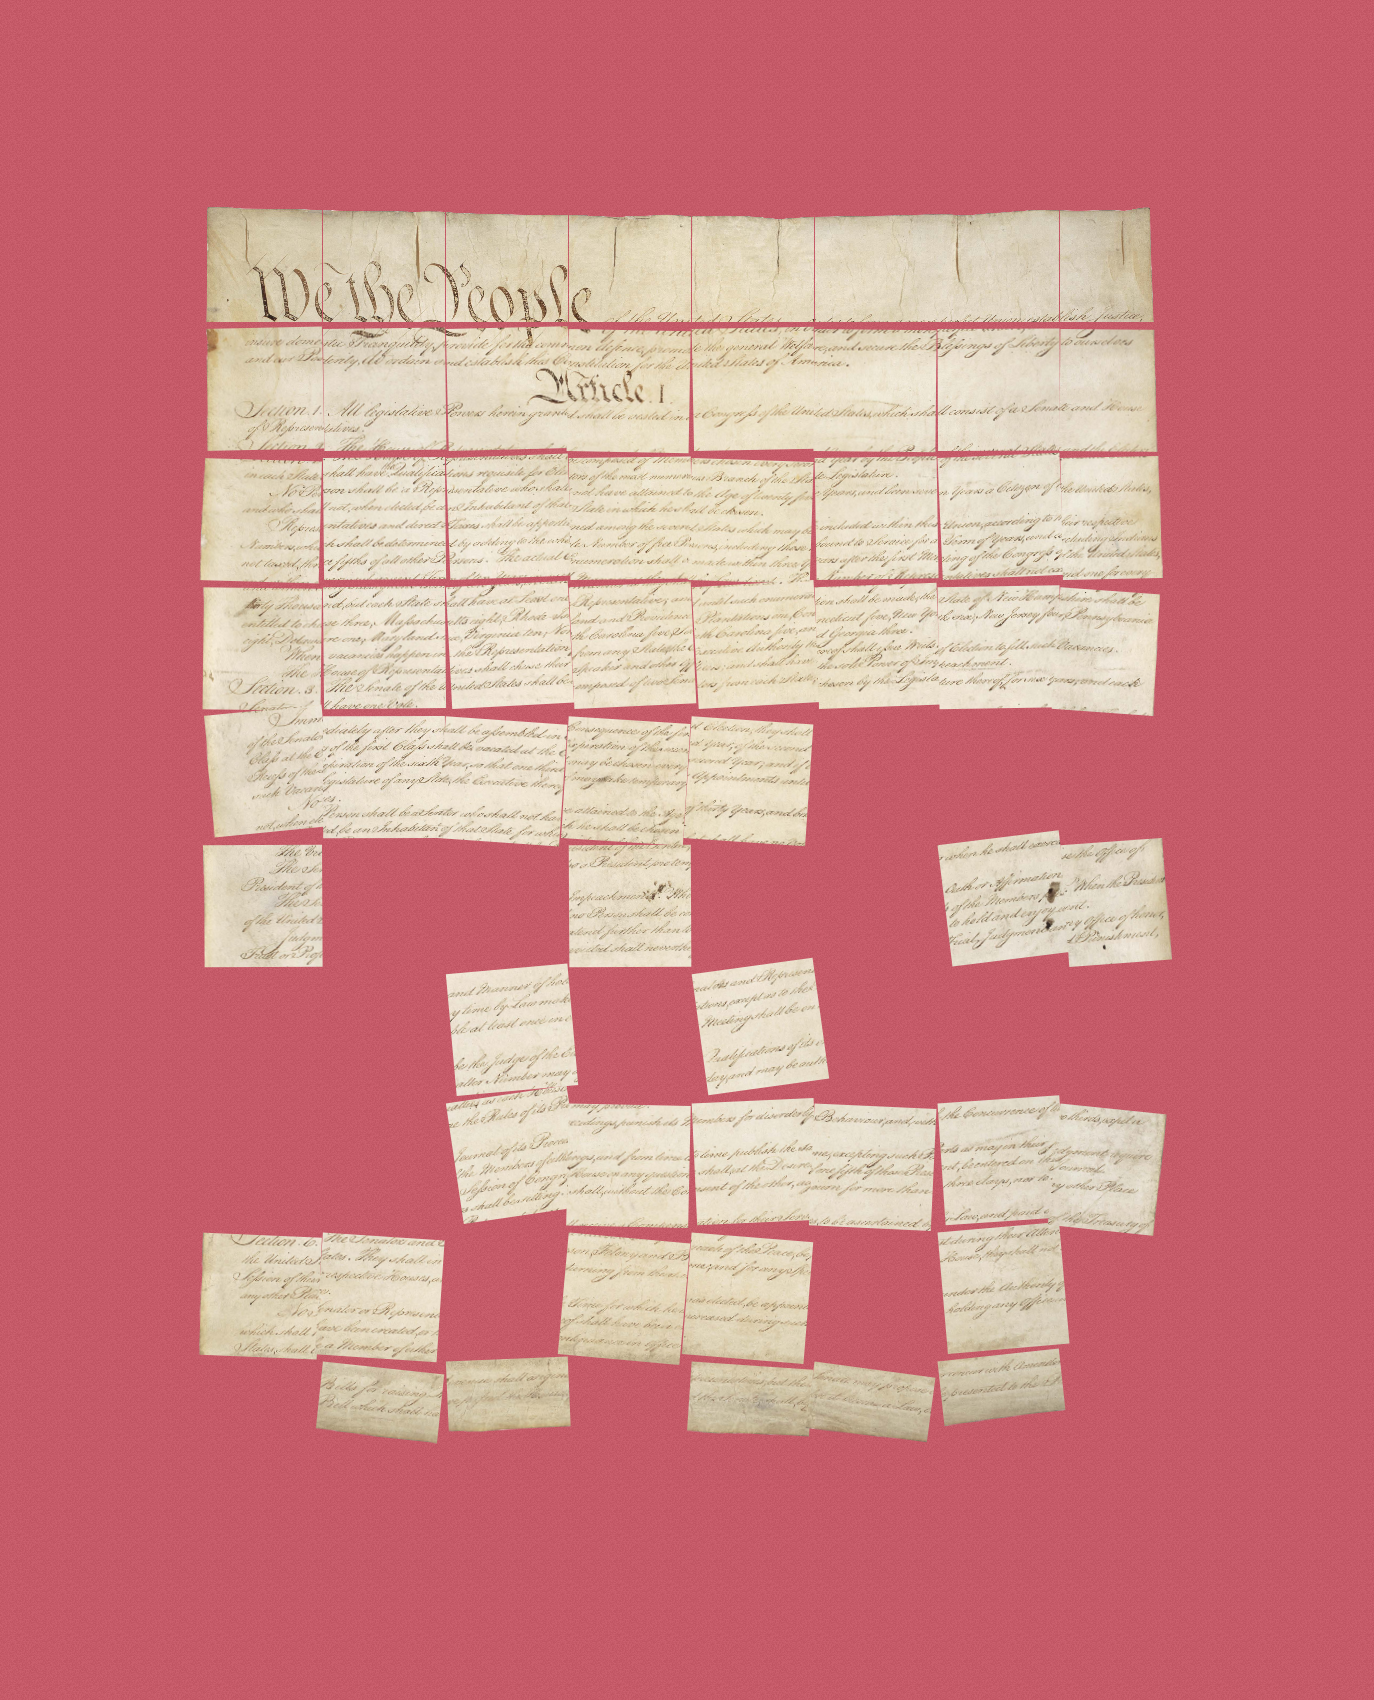 We the People of the United States, in Order to form a more perfect Union, establish Justice,
insure domestic Tranquility, provide for the common defence, promote the general Welfare, and secure the Blessings of Liberty to ourselves
and our Posterity, do ordain and establish this Constitution for the United States of America.
Article I.
Section. 1. All legislative Powers herein granted shall be vested in a Congress of the United States, which shall consist of a Senate and House
of Representatives.
Section. 2. The House of Representatives shall be composed of Members chosen every second Year by the People of the several States, and the
in each State shall have Qualifications requisite for Electors of the most numerous Branch of the State Legislature.
No Person shall be a Representative who shall not have attained to the Age of twenty five Years, and been seven Years a Citizen of the United States,
and who shall not, when elected, be an Inhabitant of that State in which he shall be chosen.
Representatives and direct Taxes shall be apportioned among the several States which may be included within this Union, according to their respective
Numbers, which shall be determined by adding to the whole Number of free Persons, including those bound to Service for a Term of Years, and excluding Indians
not taxed, three fifths of all other Persons. The actual Enumeration shall be made within three Years after the first Meeting of the Congress of the United States,
Number of Representatives shall not exceed one for every
thirty Thousand, but each State shall have at Least one Representative; and until such enumeration shall be made, the State of New Hampshire shall be
entitled to chuse three, Massachusetts eight, Rhode Island and Providence Plantations one, Connecticut five, New York six, New Jersey four, Pennsylvania
eight, Delaware one, Maryland six, Virginia ten, North Carolina five, South Carolina five, and Georgia three.
When vacancies happen in the Representation from any State, the Executive Authority thereof shall issue Writs of Election to fill such Vacancies.
The House of Representatives shall chuse their Speaker and other Officers; and shall have the sole Power of Impeachment.
Section. 3. The Senate of the United States shall be composed of two Senators from each State, chosen by the Legislature thereof, for six Years; and each
Senator shall have one Vote.
Immediately after they shall be assembled in Consequence of the first Election, they shall
of the Senators of the first Class shall be vacated at the Expiration of the second Year, of the second
Class at the Expiration of the sixth Year, so that one third may be chosen every second Year; and if
Recess of the Legislature of any State, the Executive thereof may make temporary Appointments until
such Vacancies.
No Person shall be a Senator who shall not have attained to the Age of thirty Years, and been
not, when elected, be an Inhabitant of that State for which he shall be chosen.
The Vice President of the Senate shall have no
The Senate President pro tempore when he shall exercise the Office of
President of
The Senate Impeachments. When Oath or Affirmation. When the President
of the United no Person shall be con of the Members
Judgment extend further than to to hold and enjoy any Office of honor,
Trust or Profit shall nevertheless Trial, Judgment and Punishment,
and Manner of hold Senators and Represen
y time by Law make ations, except as to the
ble at least once in Meeting shall be on
be the Judge of the Qualifications of its
aller Number may day, and may be auth
as each House may provide.
the Rules of its Proceedings, punish its Members for disorderly Behaviour, and, with the Concurrence of two thirds, expel a
Journal of its Proceedings, and from time to time publish the same, excepting such Parts as may in their Judgment require
the Members of either House on any question shall, at the Desire of one fifth of those Present, be entered on the Journal.
Session of Congress, shall, without the Consent of the other, adjourn for more than three days, nor to any other Place
shall be sitting.
Section. 6. The Senators and ation for their Services, to be ascertained Law, and paid out of the Treasury of
the United States. They shall in son, Felony and Breach of the Peace, be st during their Atten
Session of their respective Houses, returning from the same; and for any Spe House, they shall not
any other Place.
No Senator or Represen time for which he was elected, be appoint under the Authority of
which shall have been created, or of shall have been encreased during such holding any Office
States, shall be a Member of either continuance in Office.
Bills for raising Revenue shall origin Senate may propose or concur with Amend
Bill which shall have presented to the